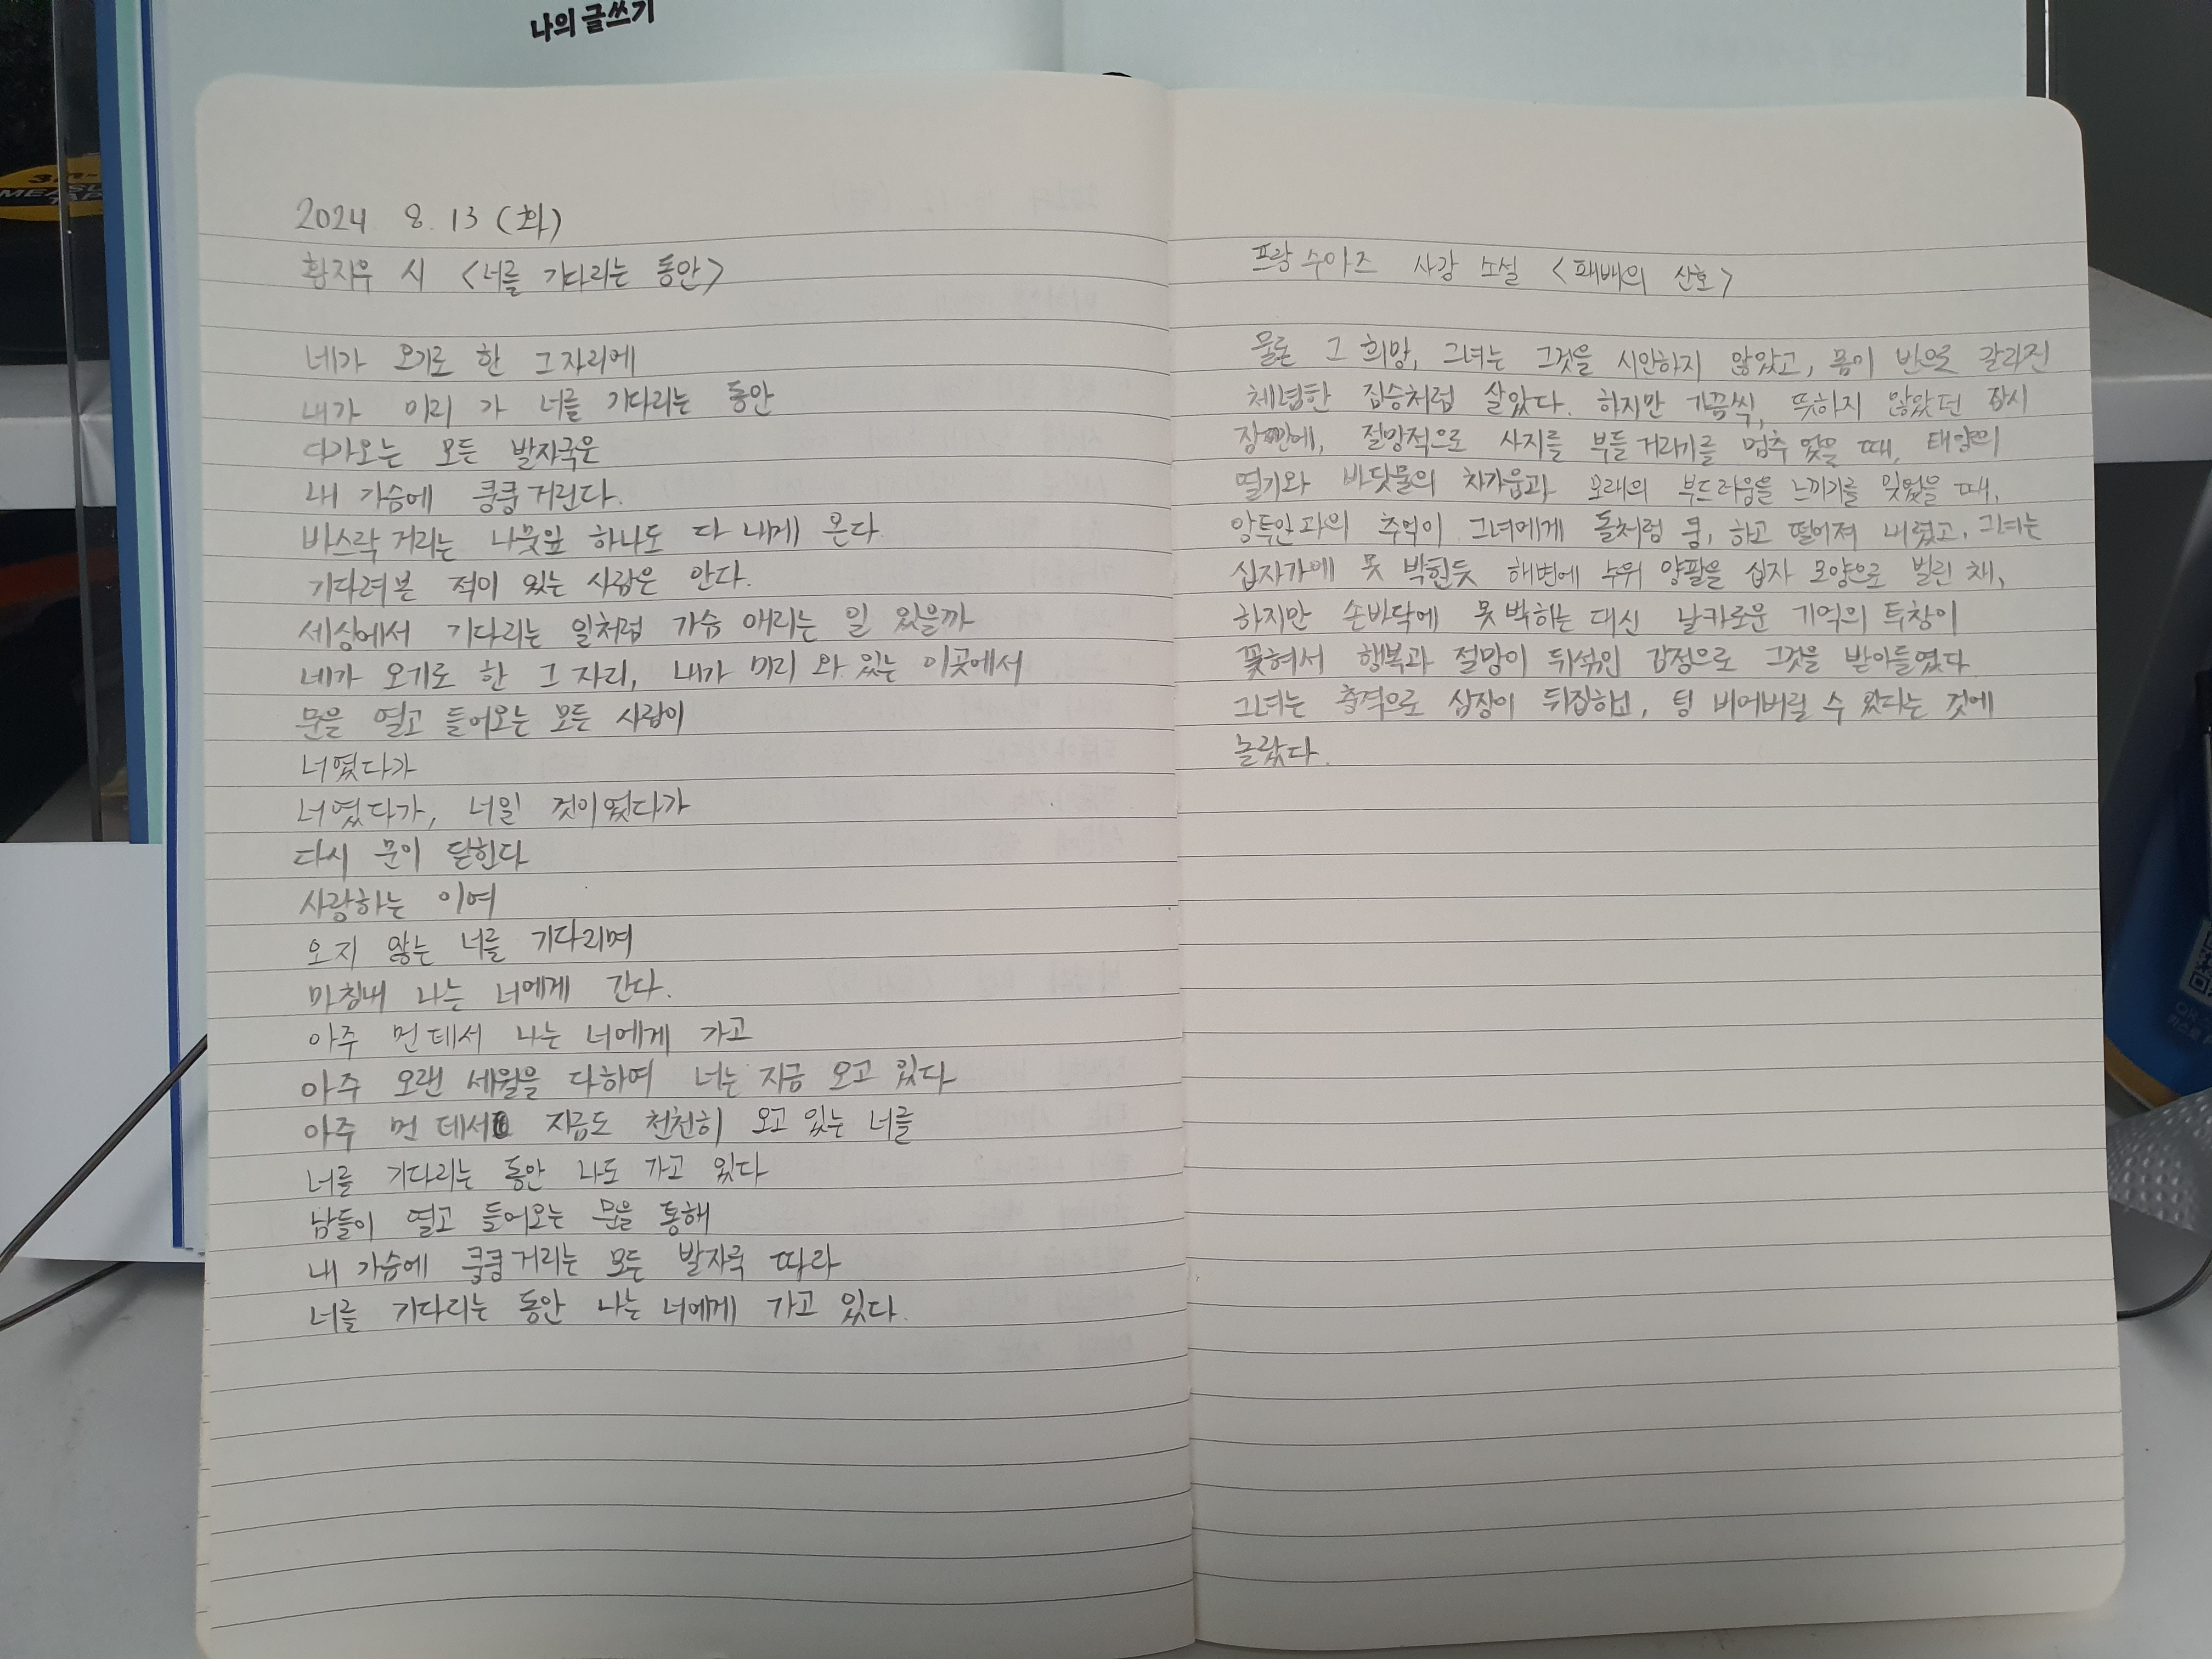 나의 글쓰기
2024 8. 13 (화)
황지우 시 <너를 기다리는 동안>
네가 오기로 한 그 자리에
내가 미리 가 너를 기다리는 동안
다가오는 모든 발자국은
내 가슴에 쿵쿵거린다.
바스락 거리는 나뭇잎 하나도 다 내게 온다
기다려본 적이 있는 사람은 안다.
세상에서 기다리는 일처럼 가슴 애리는 일 있을까
네가 오기로 한 그 자리, 내가 미리 와 있는 이곳에서
문을 열고 들어오는 모든 사람이
너였다가
너였다가, 너일 것이었다가
다시 문이 닫힌다
사랑하는 이여
오지 않는 너를 기다리며
마침내 나는 너에게 간다.
아주 먼 데서 나는 너에게 가고
아주 오랜 세월을 다하여 너는 지금 오고 있다
아주 먼 데서 지금도 천천히 오고 있는 너를
너를 기다리는 동안 나도 가고 있다
남들이 열고 들어오는 문을 통해
내 가슴에 쿵쿵거리는 모든 발자국 따라
너를 기다리는 동안 나는 너에게 가고 있다.
프랑수아즈 사강 소설 <패배의 신호>
물론 그 희망, 그녀는 그것을 시인하지 않았고, 몸이 반으로 갈라진
체념한 짐승처럼 살았다. 하지만 가끔씩, 뜻하지 않았던 잠시
잠깐에, 절망적으로 사지를 부들거리기를 멈추었을 때, 태양의
열기와 바닷물의 차가움과 모래의 부드러움을 느끼기를 잊었을 때,
앙투안과의 추억이 그녀에게 돌처럼 쿵, 하고 떨어져 내렸고, 그녀는
십자가에 못 박힌듯 해변에 누워 양팔을 십자 모양으로 벌린 채,
하지만 손바닥에 못 박히는 대신 날카로운 기억의 투창이
꽃혀서 행복과 절망이 뒤섞인 감정으로 그것을 받아들였다
그녀는 충격으로 심장이 뒤집히고, 텅 비어버릴 수 있다는 것에
놀랐다.